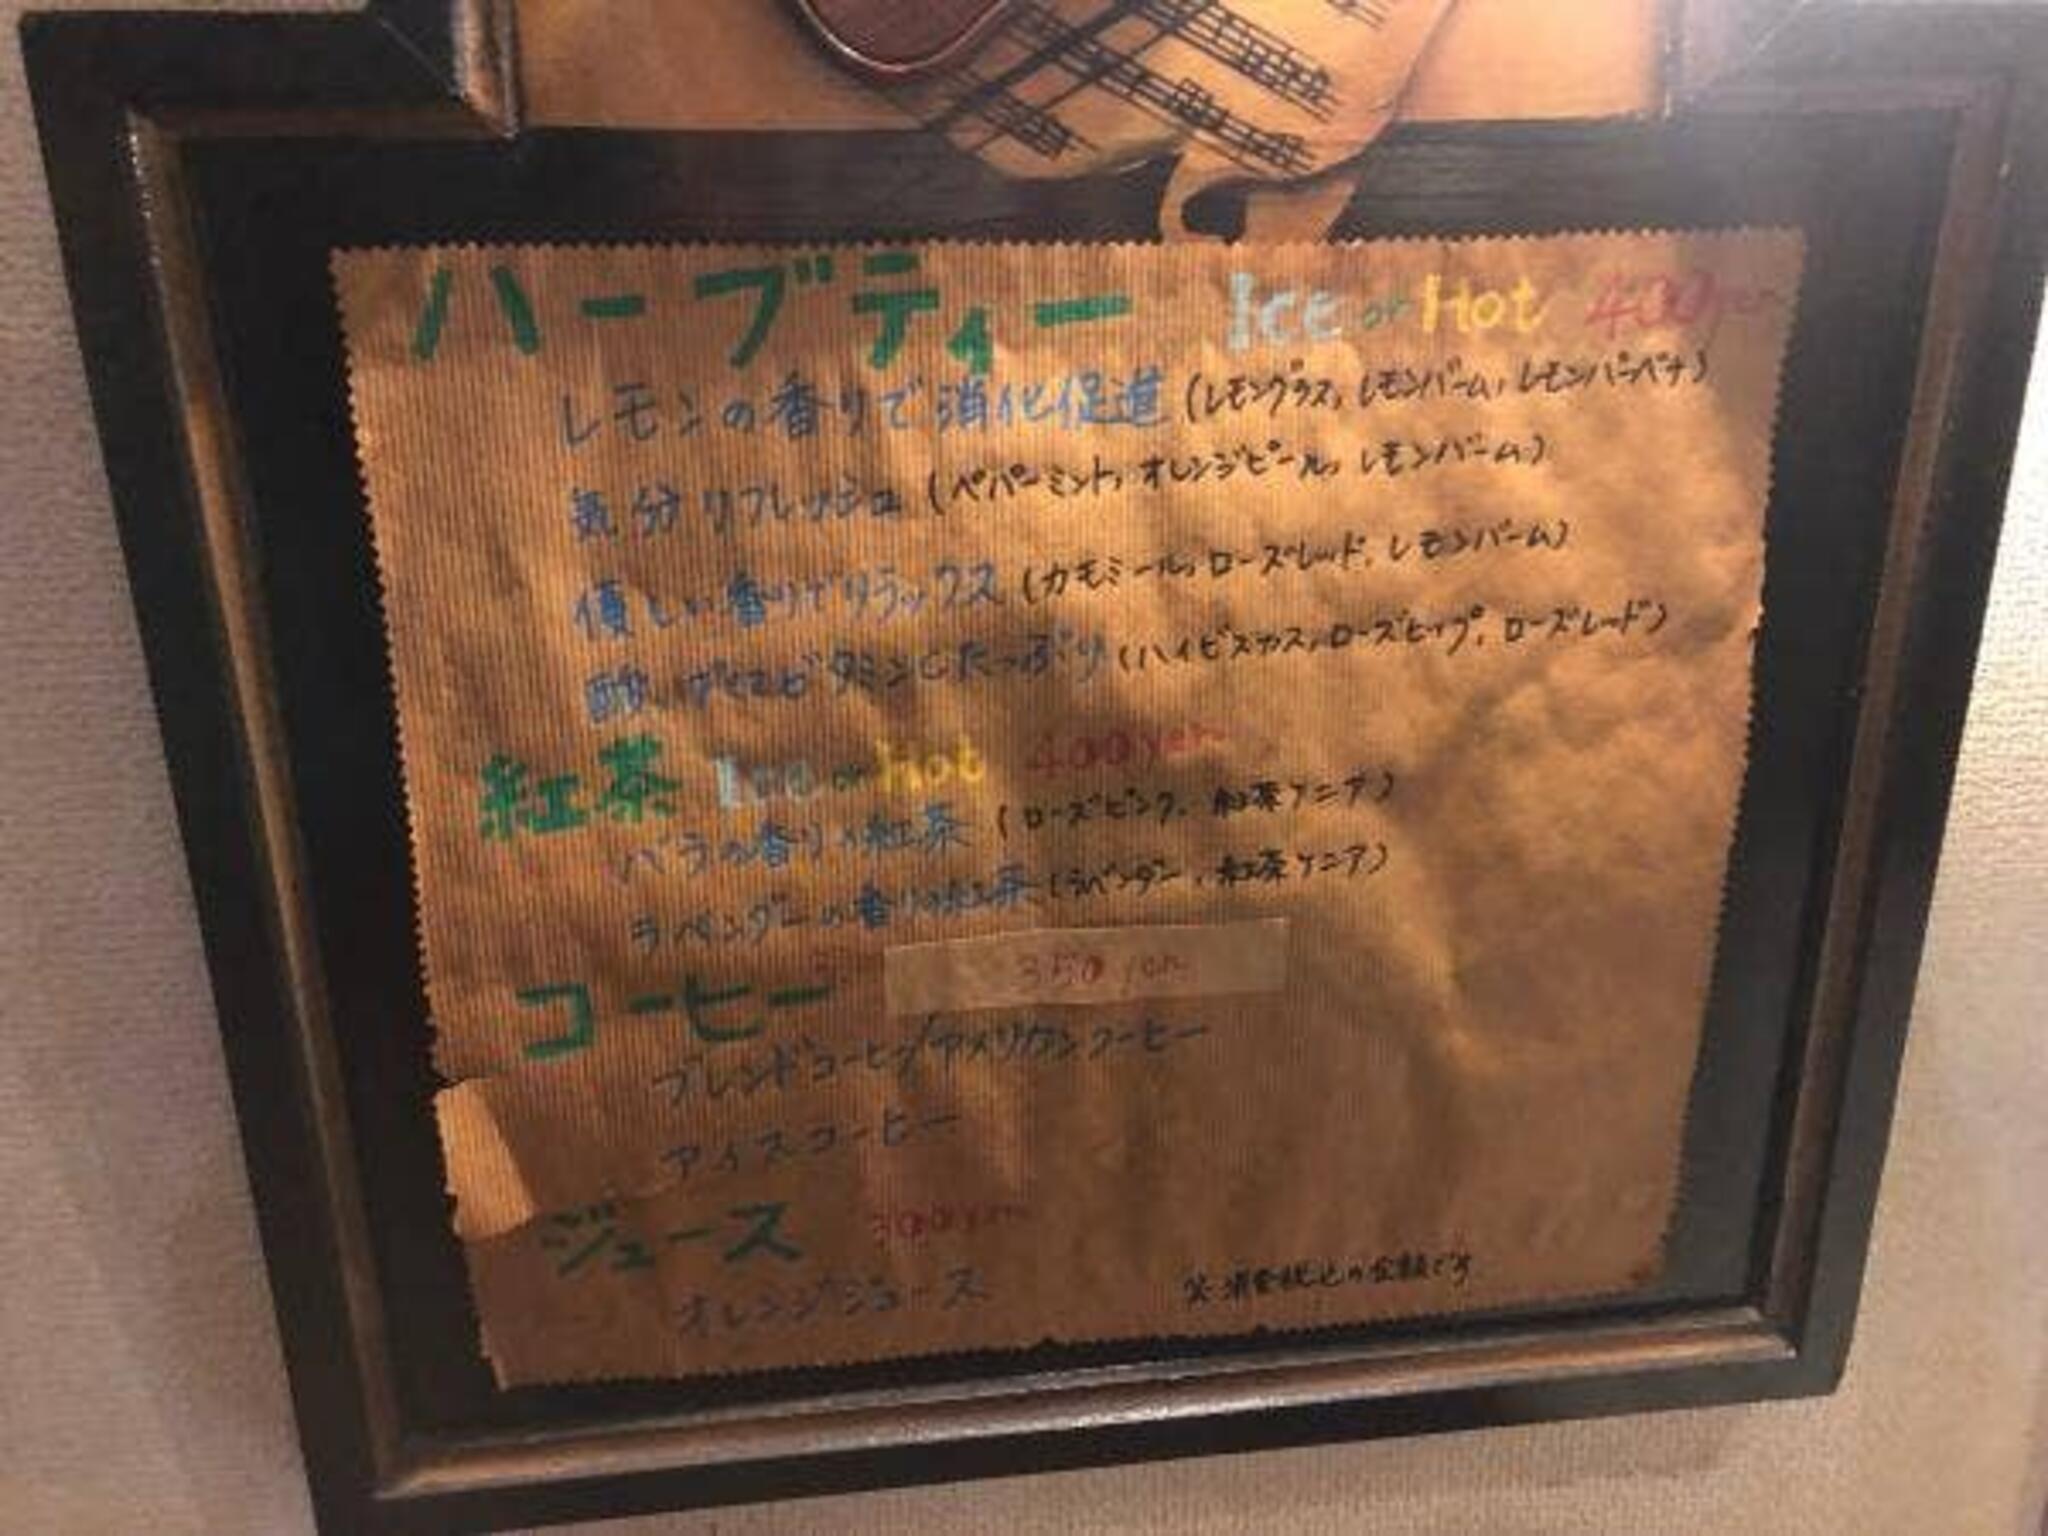 ハーブティー Ice or Hot 400yen
レモンの香りで消化促進 (レモングラス, レモンバーム, レモンバーベナ)
気分リフレッシュ (ペパーミント, オレンジピール, レモンバーム)
優しい香りでリラックス (カモミール, ローズレッド, レモンバーム)
酸っぱさはビタミンCたっぷり (ハイビスカス, ローズヒップ, ローズレッド)
紅茶 Ice or hot 400yen
バラの香りの紅茶 (ローズピンク, 紅茶ケニア)
ラベンダーの香りの紅茶 (ラベンダー, 紅茶ケニア)
コーヒー 350yen
ブレンドコーヒー/アメリカンコーヒー
アイスコーヒー
ジュース 300yen
オレンジジュース
※消費税込の金額です